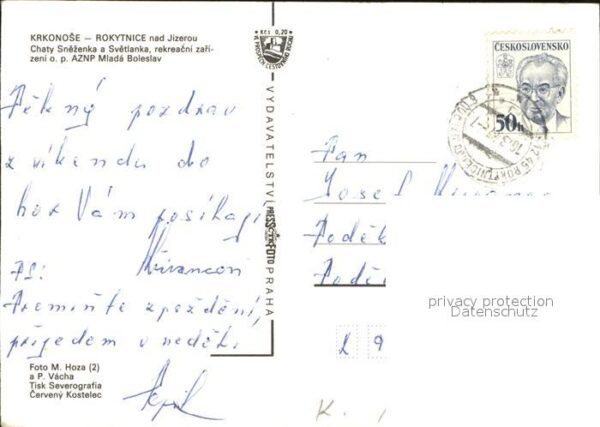 KRKONOŠE — ROKYTNICE nad Jizerou
Chaty Sněženka a Světlanka, rekreační zaří-
zení o. p. AZNP Mladá Boleslav
Pěkný pozdrav
z víkendu do
hor Vám posílají
PS:
Promiňte zpoždění,
přijedem v neděli
Foto M. Hoza (2)
a P. Vácha
Tisk Severografia
Červený Kostelec
Kčs 0,20
VYDAVATELSTVÍ PRESSFOTO PRAHA
ČESKOSLOVENSKO
50h
Pan
Josef
Poděk
Poděk
privacy protection
Datenschutz
2 9
K.